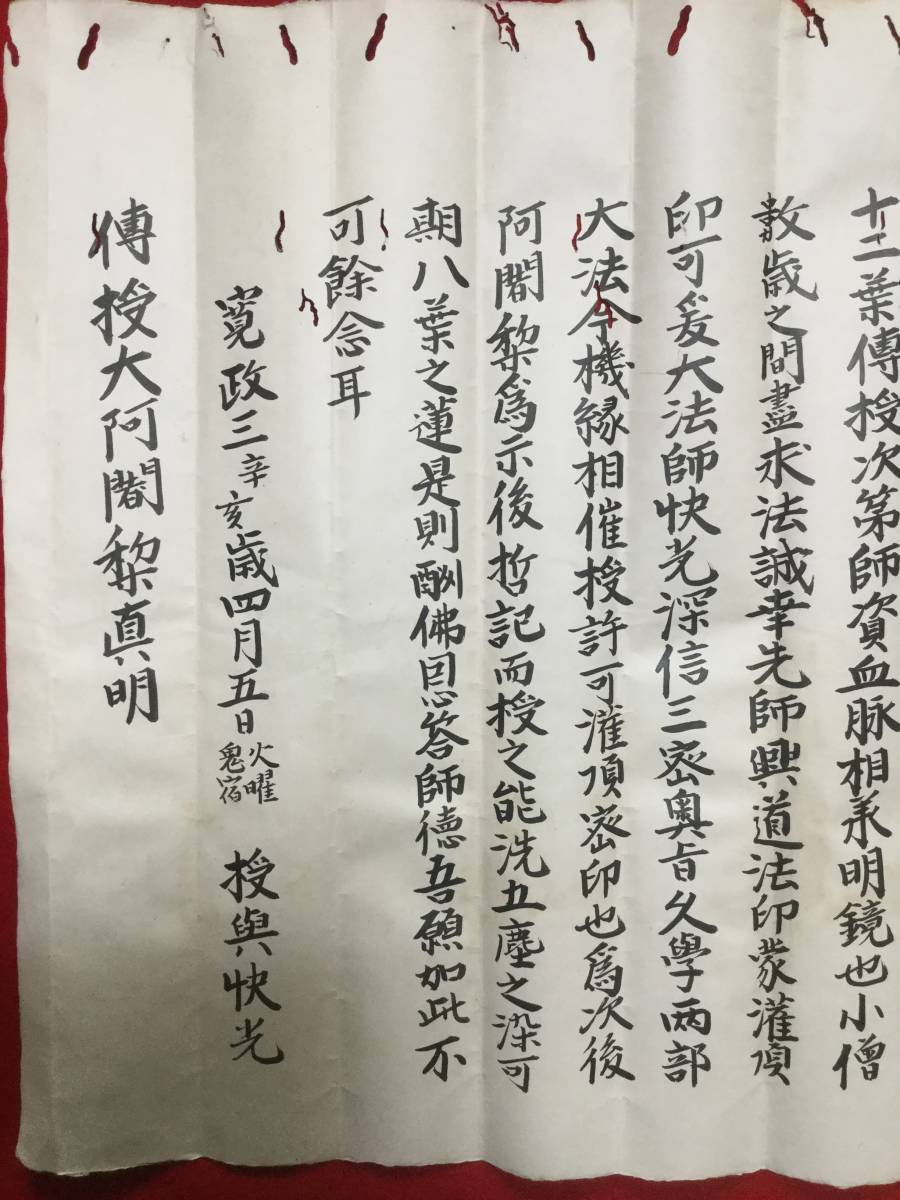 十二葉傳授次第師資血脉相承明鏡也小僧
数歳之間盡求法誠幸先師興道法印蒙灌頂
印可爰大法師快光深信三密奥旨久學兩部
大法今機縁相催授許可灌頂密印也爲次後
阿闍梨爲示後哲記而授之能洗五塵之染可
期八葉之蓮是則酬佛恩答師德吾願如此不
可餘念耳
寛政三辛亥歳四月五日火曜鬼宿 授與快光
傳授大阿闍梨真明